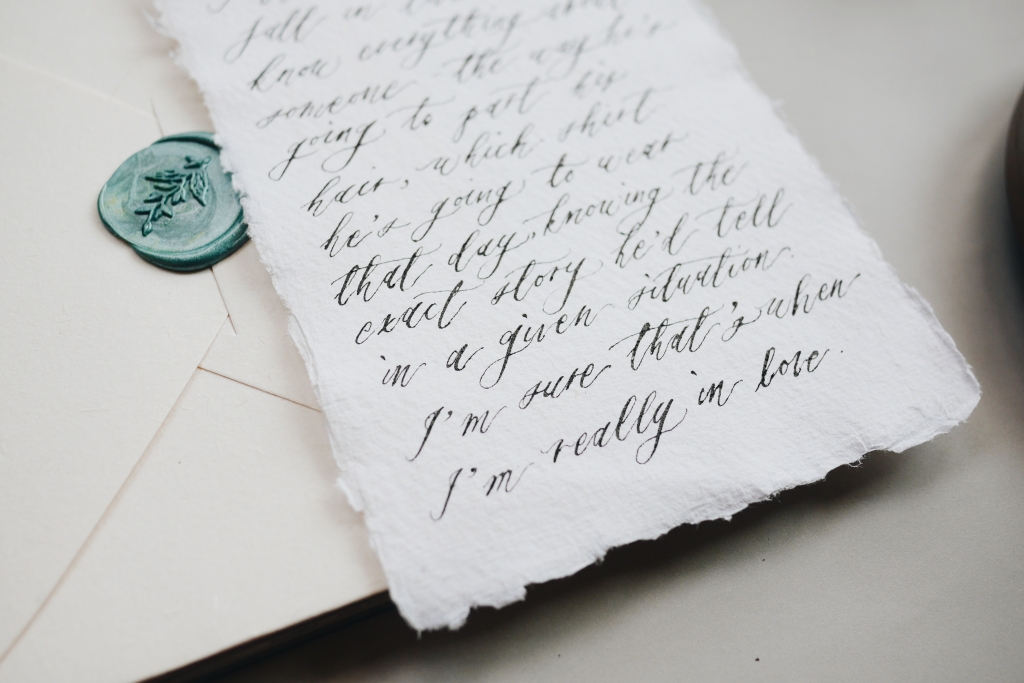 fall in
know everything about
someone – the way he's
going to part his
hair, which shirt
he's going to wear
that day, knowing the
exact story he'd tell
in a given situation.
I'm sure that's when
I'm really in love.